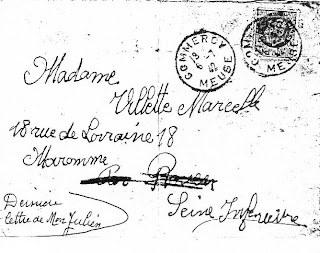 COMMERCY
MEUSE
Madame
Villette Marcelle
18 rue de Lorraine 18
Maromme
Seine Inférieure
Dernière
lettre de Mon Julien